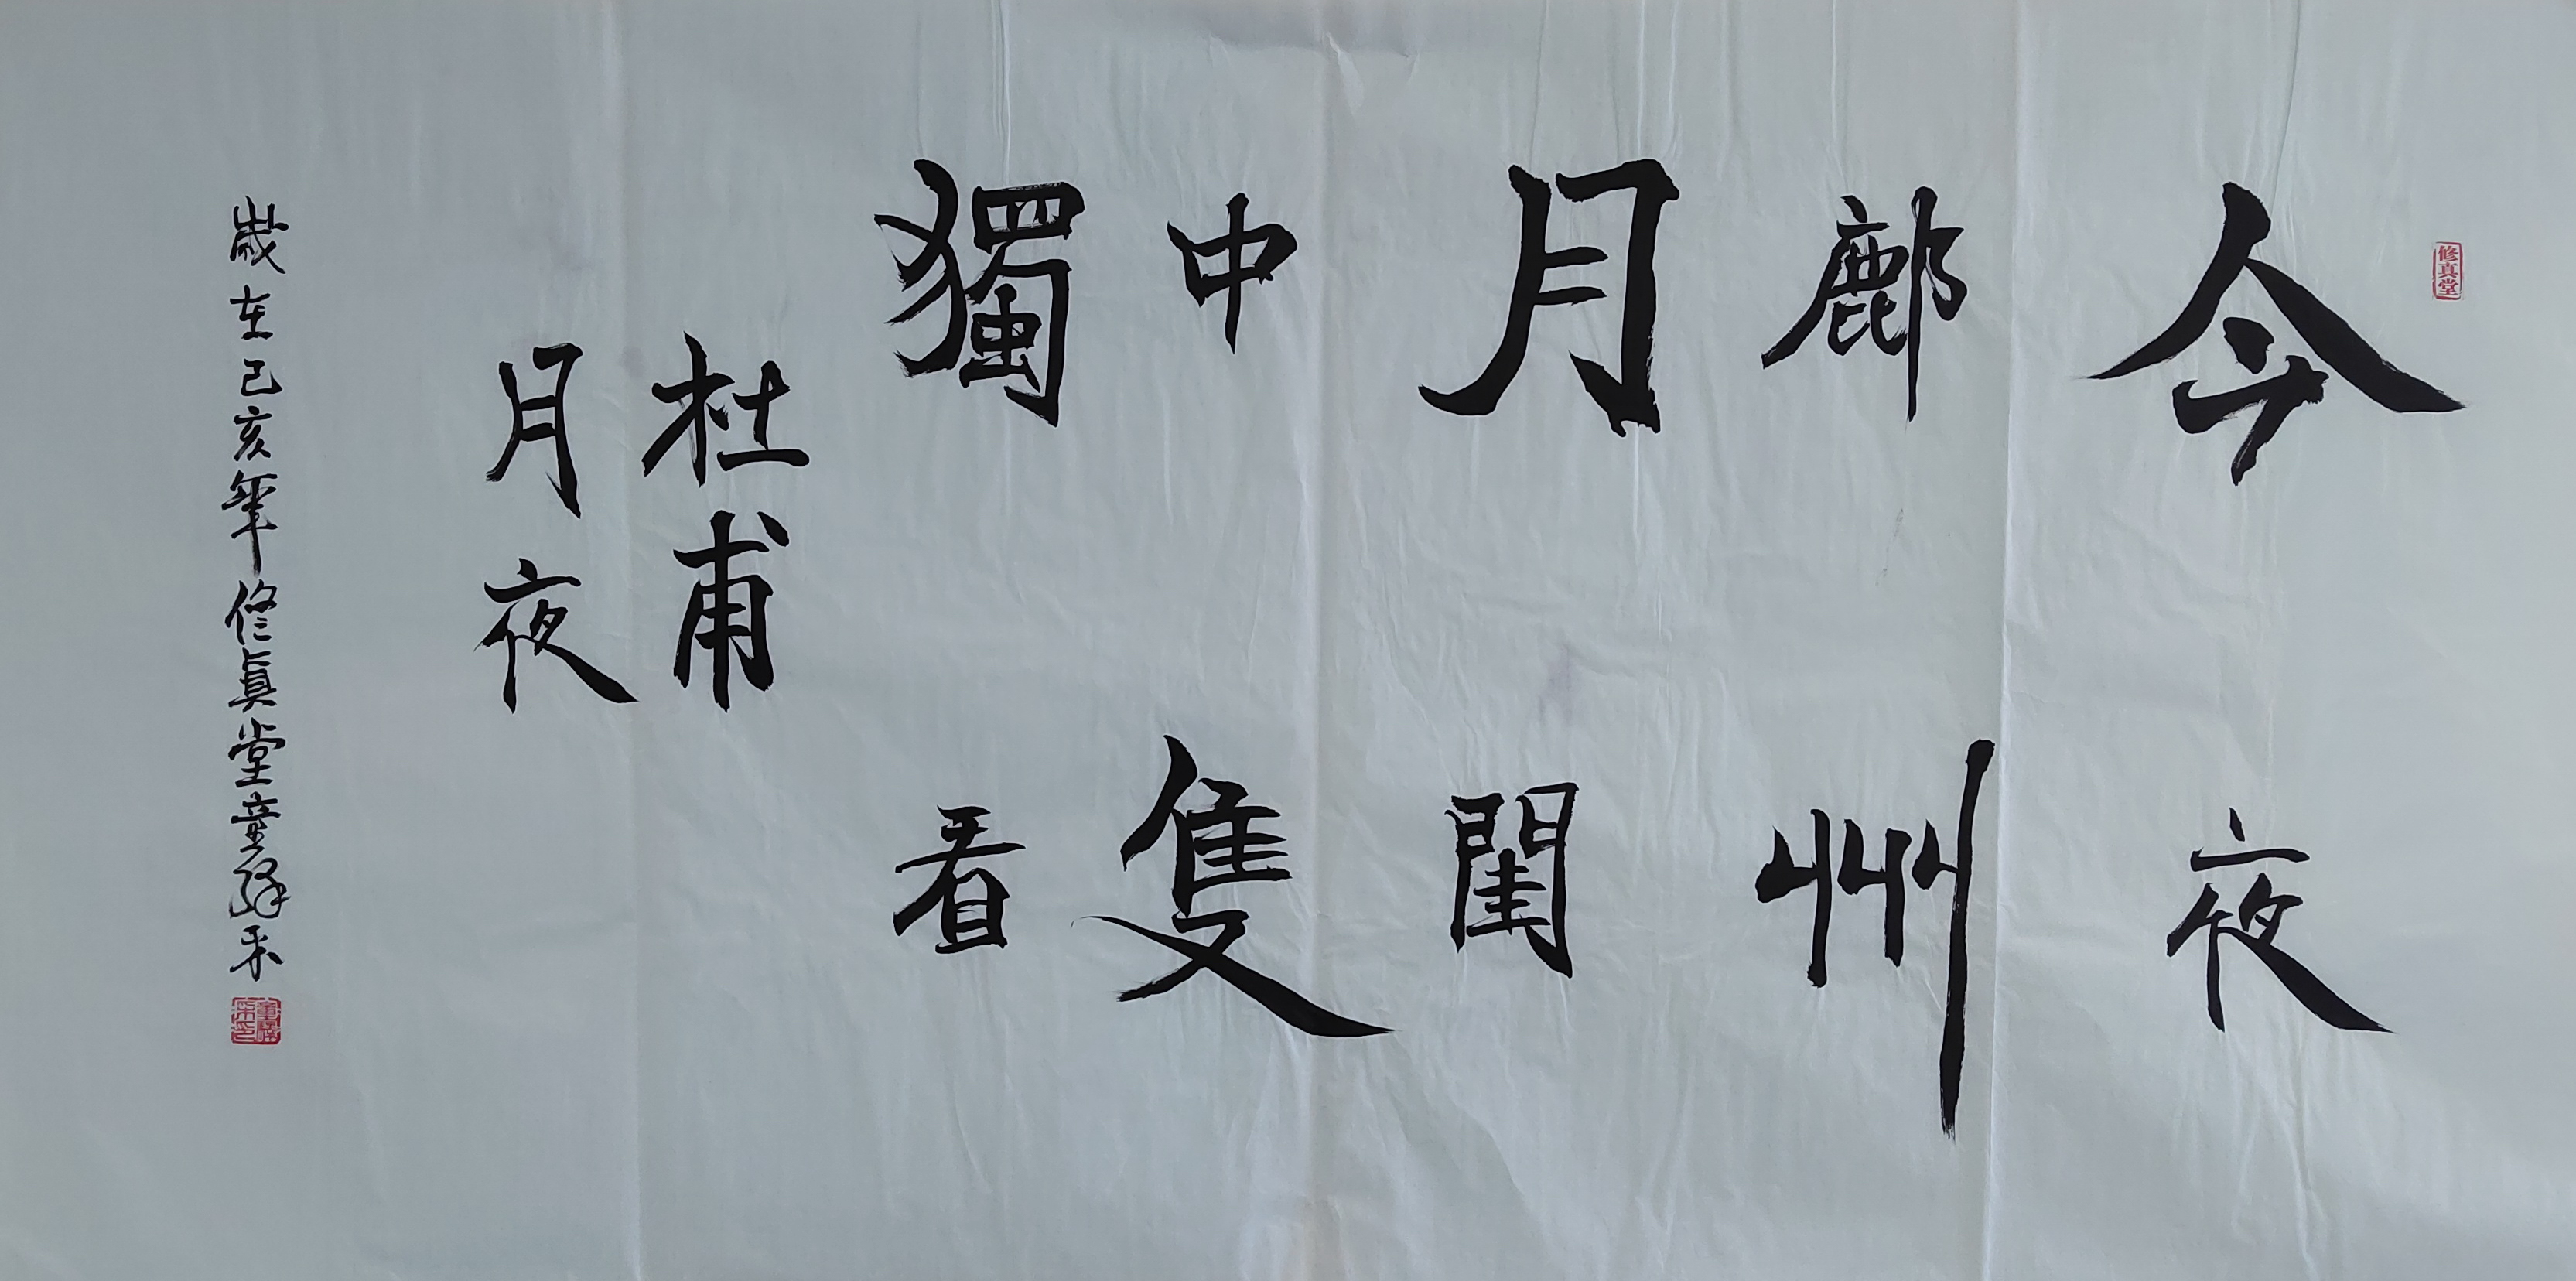 修真堂
今夜
鄜州
月閨
中隻
獨看
杜甫
月夜
歲在己亥年修真堂童擇采